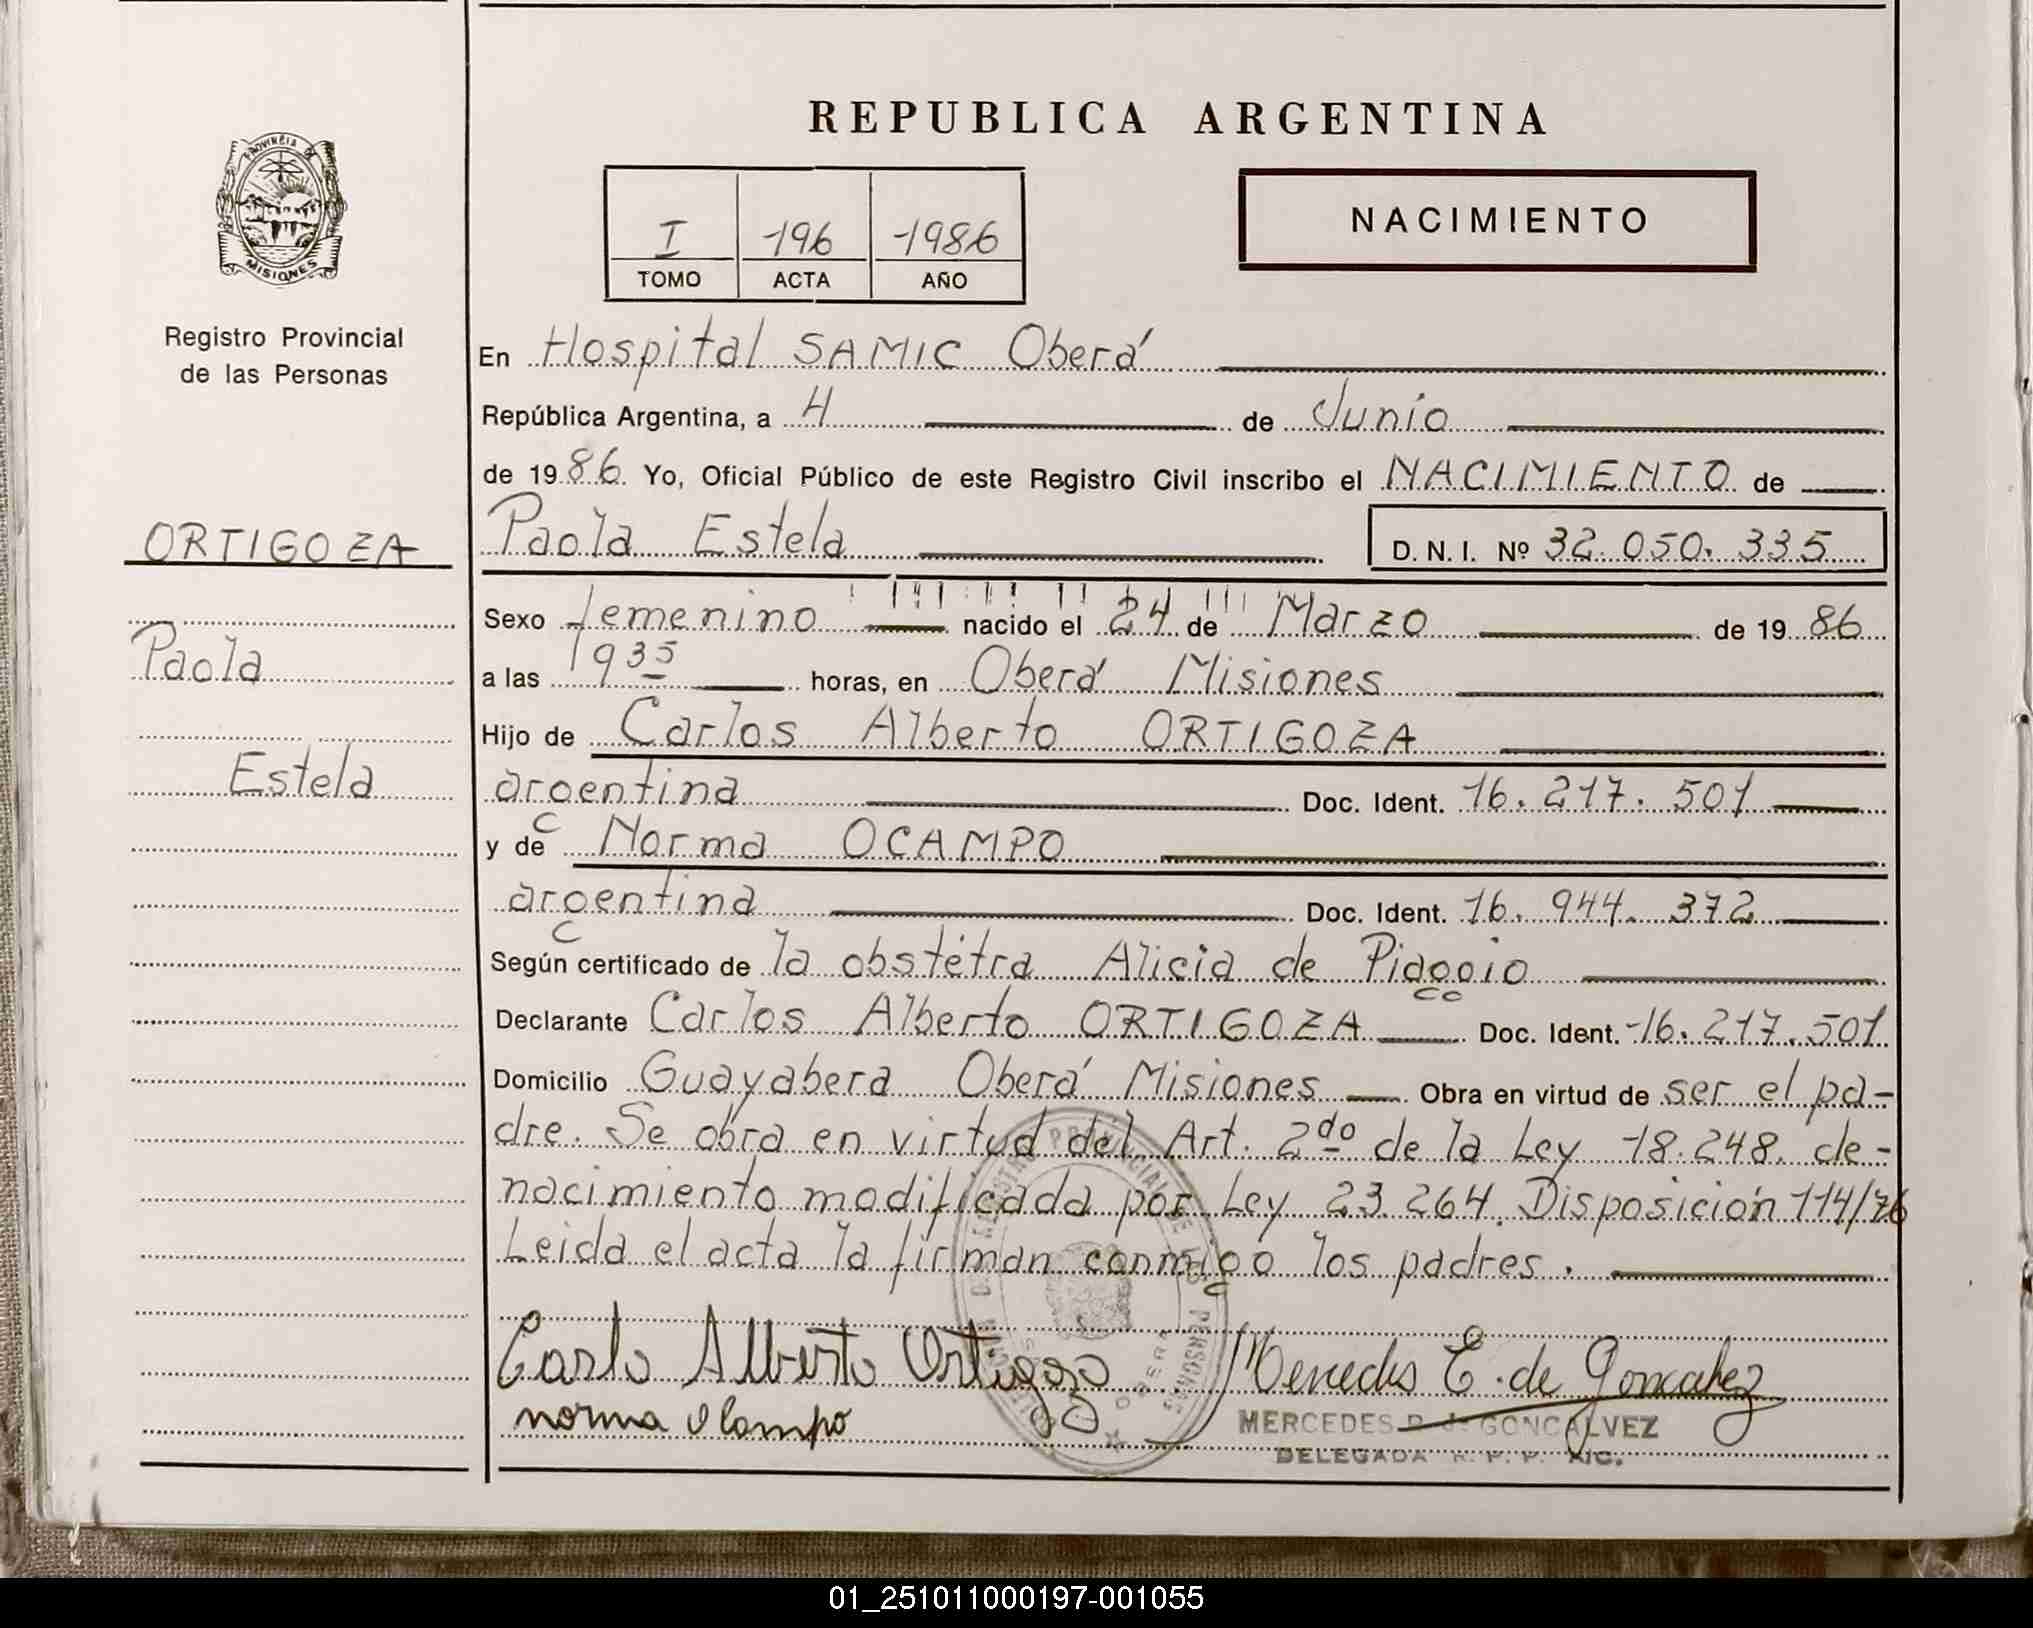 REPUBLICA ARGENTINA
PROVINCIA DE
MISIONES
Registro Provincial
de las Personas
I 196 1986
TOMO ACTA AÑO
NACIMIENTO
En Hospital SAMIC Oberá
República Argentina, a 4 de Junio
de 1986 Yo, Oficial Público de este Registro Civil inscribo el NACIMIENTO de
ORTIGOZA
Paola Estela D.N.I. Nº 32.050.335
Sexo femenino nacido el 24 de Marzo de 1986
Paola
a las 19 35 horas, en Oberá Misiones
Hijo de Carlos Alberto ORTIGOZA
Estela
argentina Doc. Ident. 16.217.501
y de Norma OCAMPO
argentina Doc. Ident. 16.944.372
Según certificado de la obstétra Alicia de Piaggio
Declarante Carlos Alberto ORTIGOZA Doc. Ident. 16.217.501
Domicilio Guayabera Oberá Misiones Obra en virtud de ser el pa-
dre. Se obra en virtud del Art. 2do de la Ley 18.248. de-
nacimiento modificada por Ley 23.264. Disposición 114/76
Leida el acta la firman conmigo los padres.
Carlo Alberto Ortigoza Mercedes E. de Goncalvez
norma Ocampo
MERCEDES GONCALVEZ
DELEGADA
01_251011000197-001055